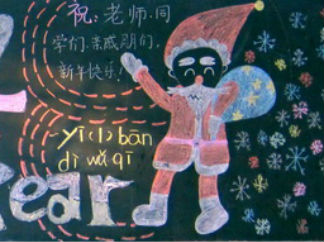 祝:老师.同
学们.亲戚朋们,
新年快乐!
yī(1)bān
dì wǔ qī
ear